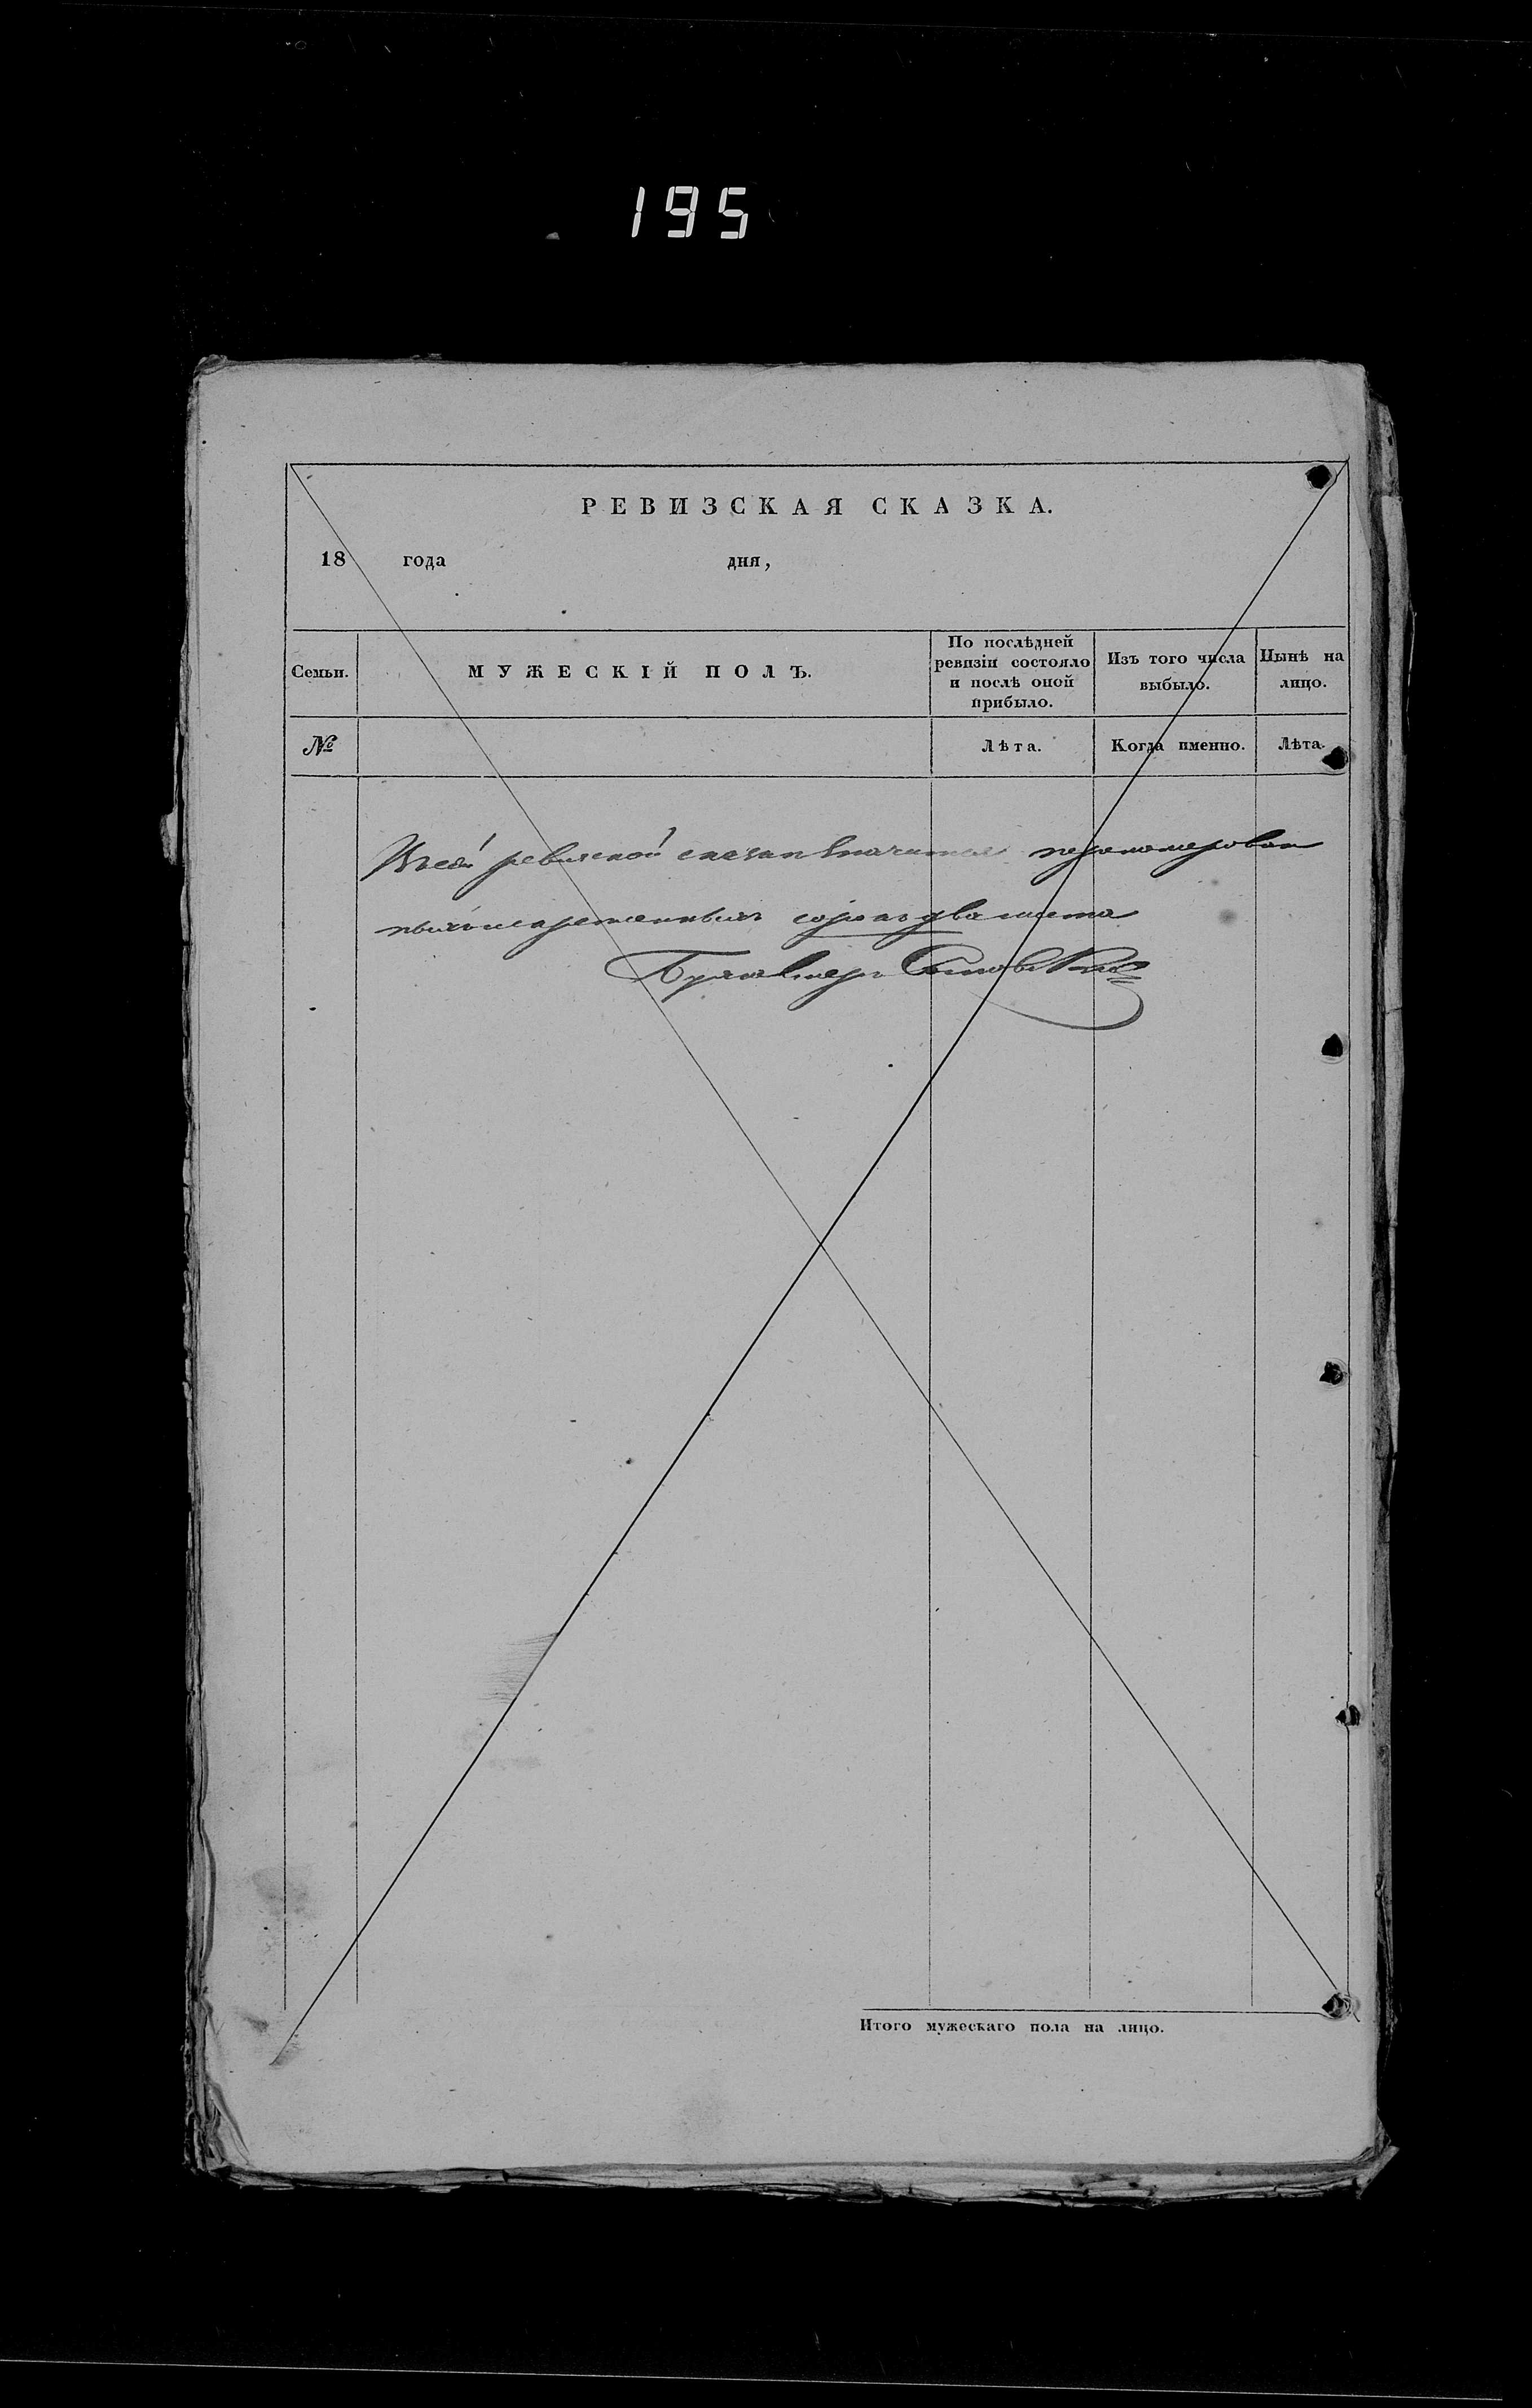 195
РЕВИЗСКАЯ СКАЗКА.
18 года дня,
Семьи.
МУЖЕСКІЙ ПОЛЪ.
По послѣдней
ревизіи состояло
и послѣ оной
прибыло.
Изъ того числа
выбыло.
Нынѣ на
лицо.
№
Лѣта.
Когда именно.
Лѣта.
Въ сей ревизской сказки значится перономерован
ныхъ и скрепленныхъ сорокъ два листа
Бухгалтеръ
Итого мужескаго пола на лицо.